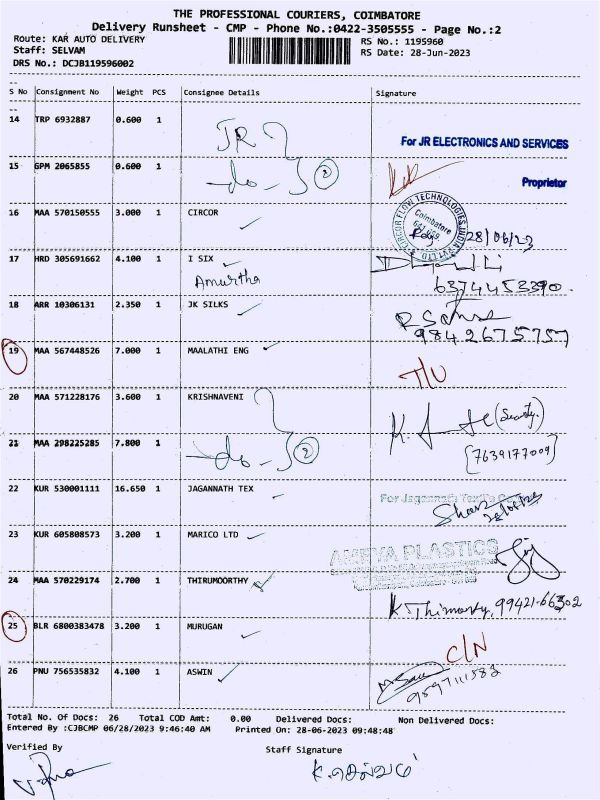 THE PROFESSIONAL COURIERS, COIMBATORE
Delivery Runsheet - CMP - Phone No.:0422-3505555 - Page No.:2
Route: KAR AUTO DELIVERY RS No.: 1195960
Staff: SELVAM RS Date: 28-Jun-2023
DRS No.: DCJB119596002
S No Consignment No Weight PCS Consignee Details Signature
14 TRP 6932887 0.600 1 JR For JR ELECTRONICS AND SERVICES
15 GPM 2065855 0.600 1 do 2 Proprietor
16 MAA 570150555 3.000 1 CIRCOR CIRCOR FLOW TECHNOLOGIES INDIA PVT LTD Coimbatore 28/06/23
17 HRD 305691662 4.100 1 I SIX
Amurtha 6374453390.
18 ARR 10306131 2.350 1 JK SILKS
9842675757
19 MAA 567448526 7.000 1 MAALATHI ENG
20 MAA 571228176 3.600 1 KRISHNAVENI (Security.
21 MAA 298225285 7.800 1 do 2 [7639177009]
22 KUR 530001111 16.650 1 JAGANNATH TEX For Jagannath
23 KUR 605808573 3.200 1 MARICO LTD AMEYA PLASTICS
24 MAA 570229174 2.700 1 THIRUMOORTHY
99421-66302
25 BLR 6800383478 3.200 1 MURUGAN C/N
26 PNU 756535832 4.100 1 ASWIN
9597111583
Total No. Of Docs: 26 Total COD Amt: 0.00 Delivered Docs: Non Delivered Docs:
Entered By :CJBCMP 06/28/2023 9:46:40 AM Printed On: 28-06-2023 09:48:48
Verified By Staff Signature